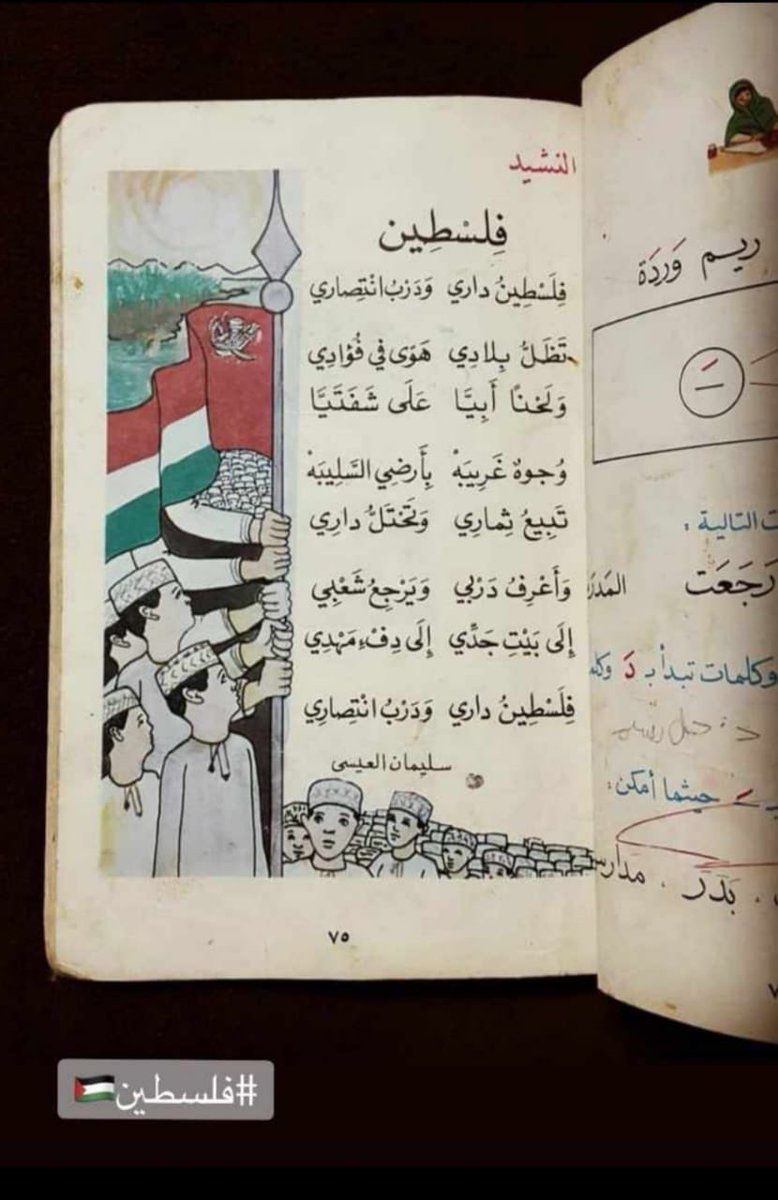 النشيد
فِلِسْطِين
فِلَسْطِينُ داري وَدَرْبُ انْتِصاري
تَظَلُّ بِلادِي هَوَى في فُؤادِي
وَلَحْنًا أَبِيَّا عَلَى شَفَتَيَّا
وُجوهٌ غَرِيبَهْ بِأَرضِي السَّلِيبَهْ
تَبِيعُ ثِماري وَتَحْتَلُّ دارِي
وَأَعْرِفُ دَرْبي وَيَرْجِعُ شَعْبِي
إِلَى بَيْتِ جَدِّي إِلَى دِفْءِ مَهْدِي
فِلَسْطِينُ دارِي وَدَرْبُ انْتِصارِي
سليمان العيسى
٧٥
ريم وَردَة
ت التالية :
رَجَعَت المَدرَ
وكلمات تبدأ بـ دَ
حيثما أمكن :
بَدَر . مدارس
#فلسطين🇵🇸